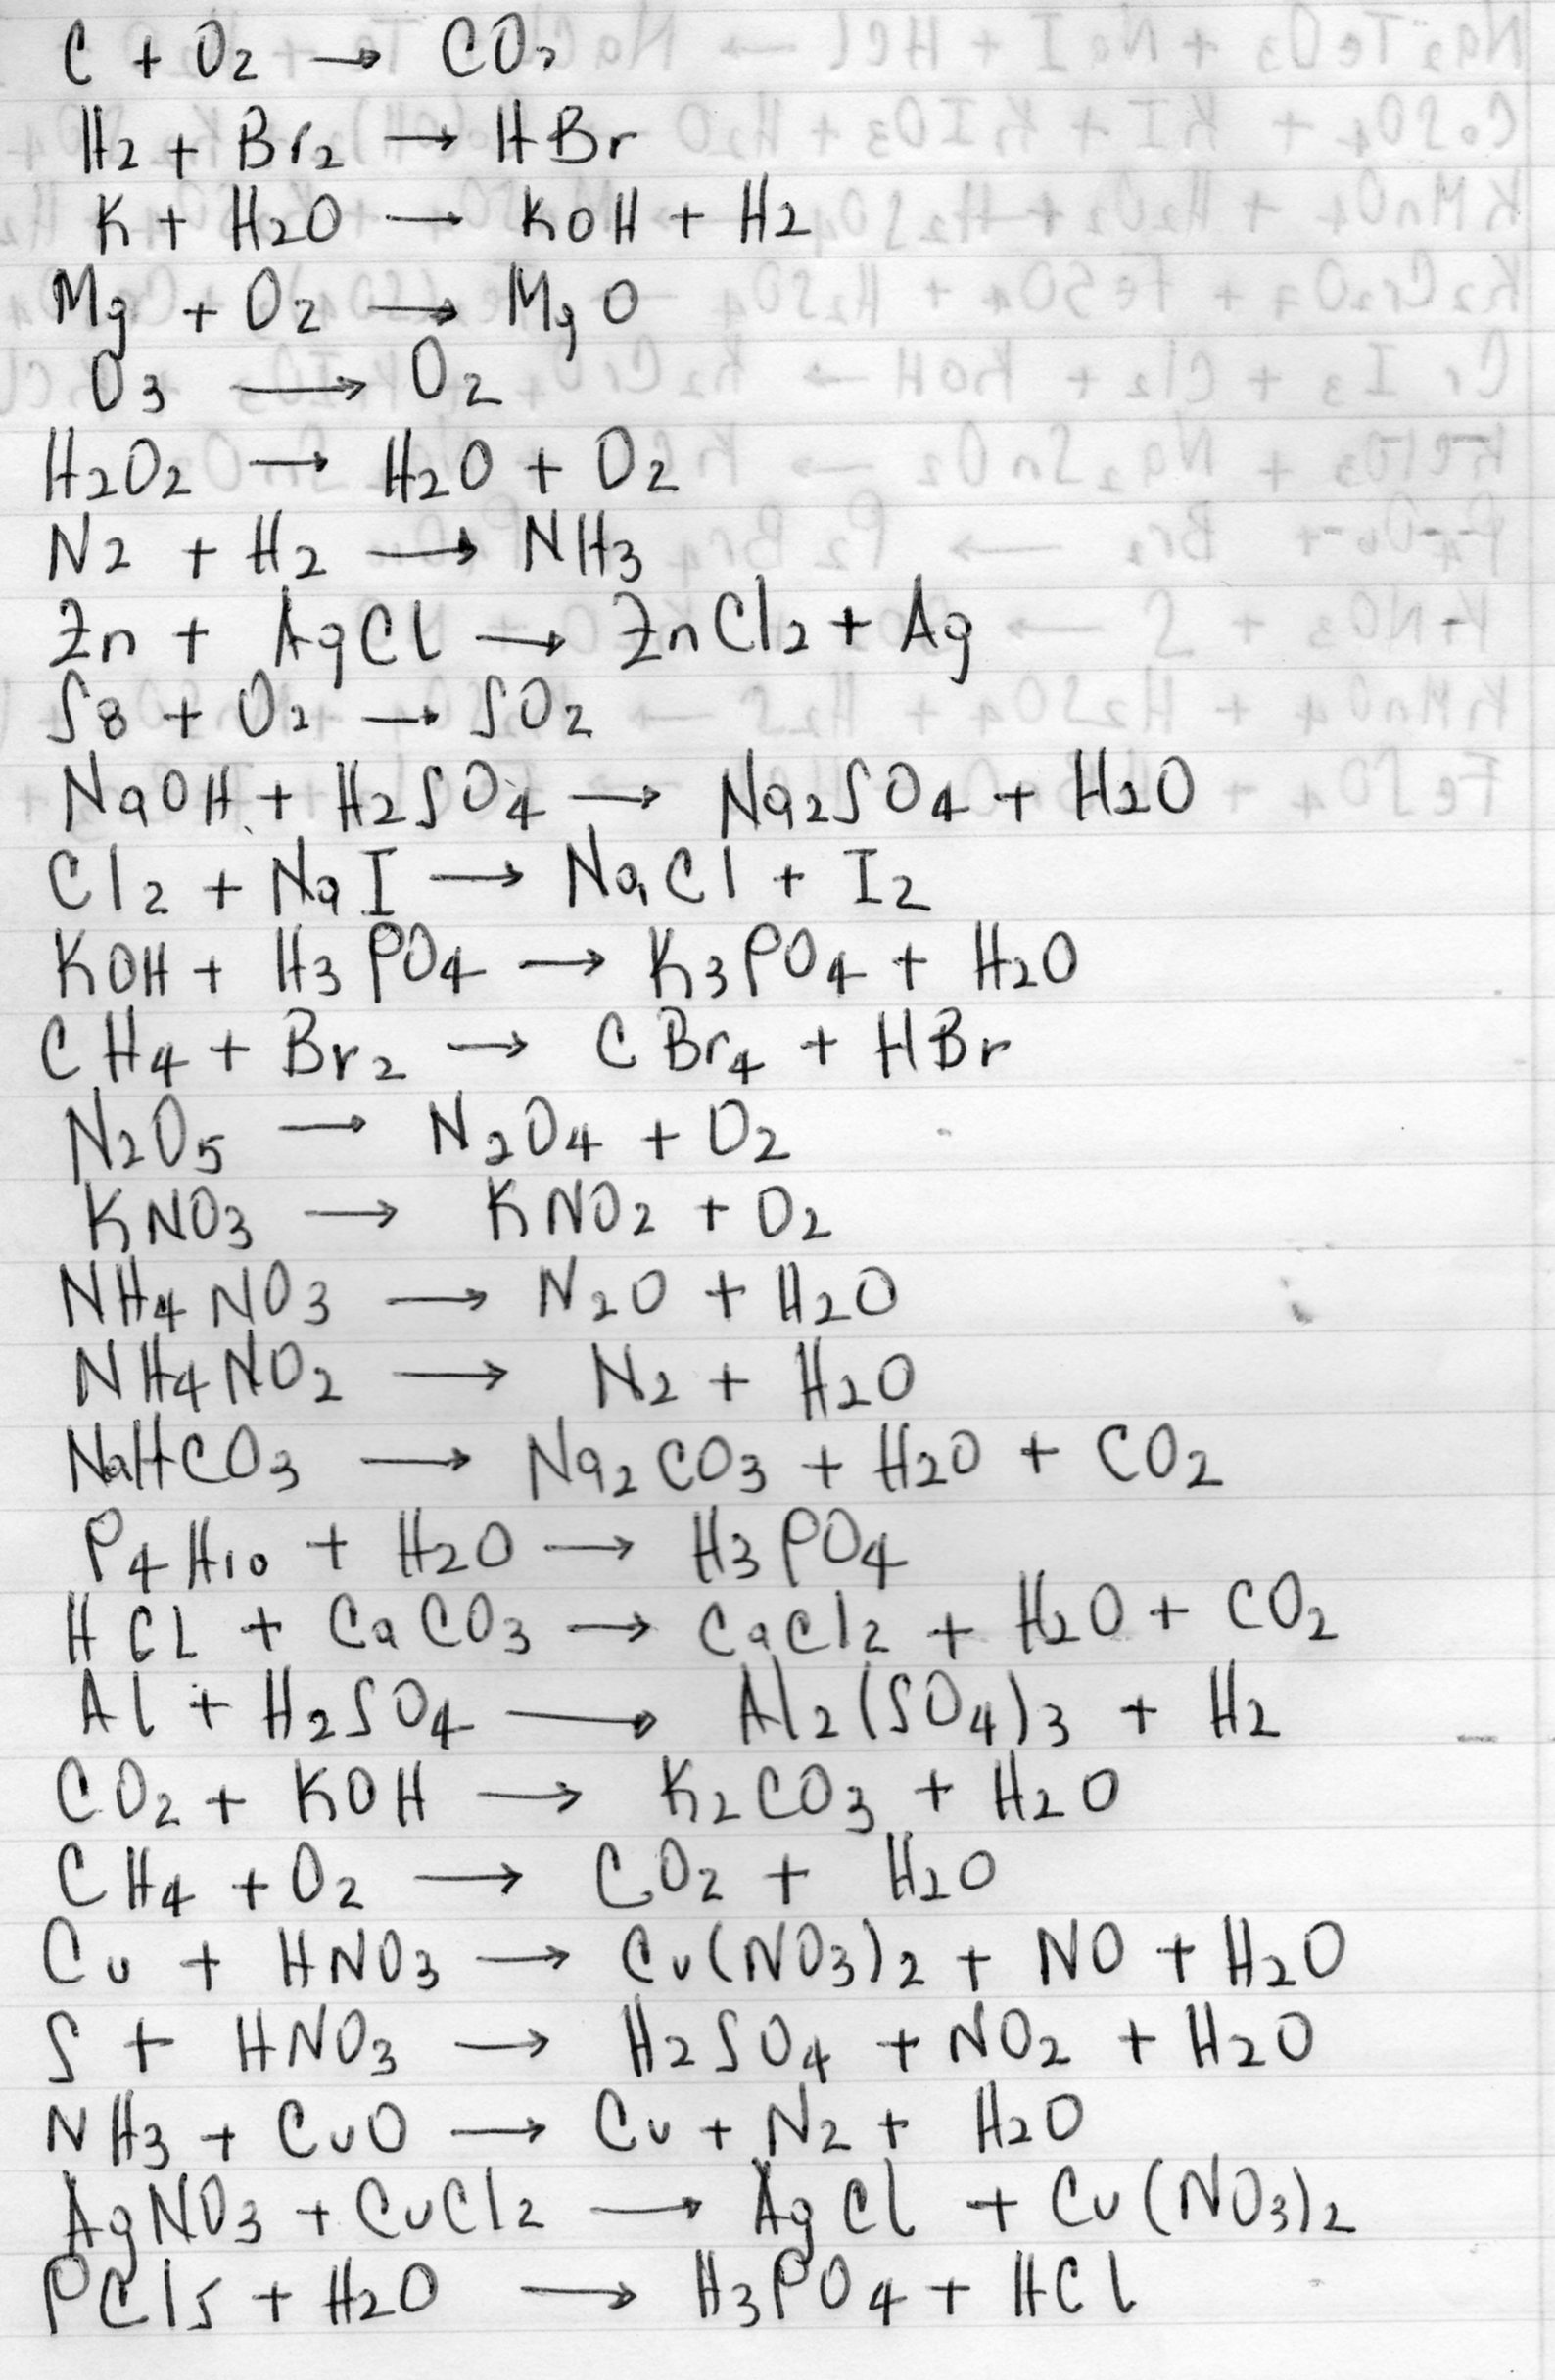 C + O2 → CO2
H2 + Br2 → HBr
K + H2O → KOH + H2
Mg + O2 → MgO
O3 → O2
H2O2 → H2O + O2
N2 + H2 → NH3
Zn + AgCl → ZnCl2 + Ag
S8 + O2 → SO2
NaOH + H2SO4 → Na2SO4 + H2O
Cl2 + NaI → NaCl + I2
KOH + H3PO4 → K3PO4 + H2O
CH4 + Br2 → CBr4 + HBr
N2O5 → N2O4 + O2
KNO3 → KNO2 + O2
NH4NO3 → N2O + H2O
NH4NO2 → N2 + H2O
NaHCO3 → Na2CO3 + H2O + CO2
P4H10 + H2O → H3PO4
HCL + CaCO3 → CaCl2 + H2O + CO2
Al + H2SO4 → Al2(SO4)3 + H2
CO2 + KOH → K2CO3 + H2O
CH4 + O2 → CO2 + H2O
Cu + HNO3 → Cu(NO3)2 + NO + H2O
S + HNO3 → H2SO4 + NO2 + H2O
NH3 + CuO → Cu + N2 + H2O
AgNO3 + CuCl2 → AgCl + Cu(NO3)2
PCl5 + H2O → H3PO4 + HCl